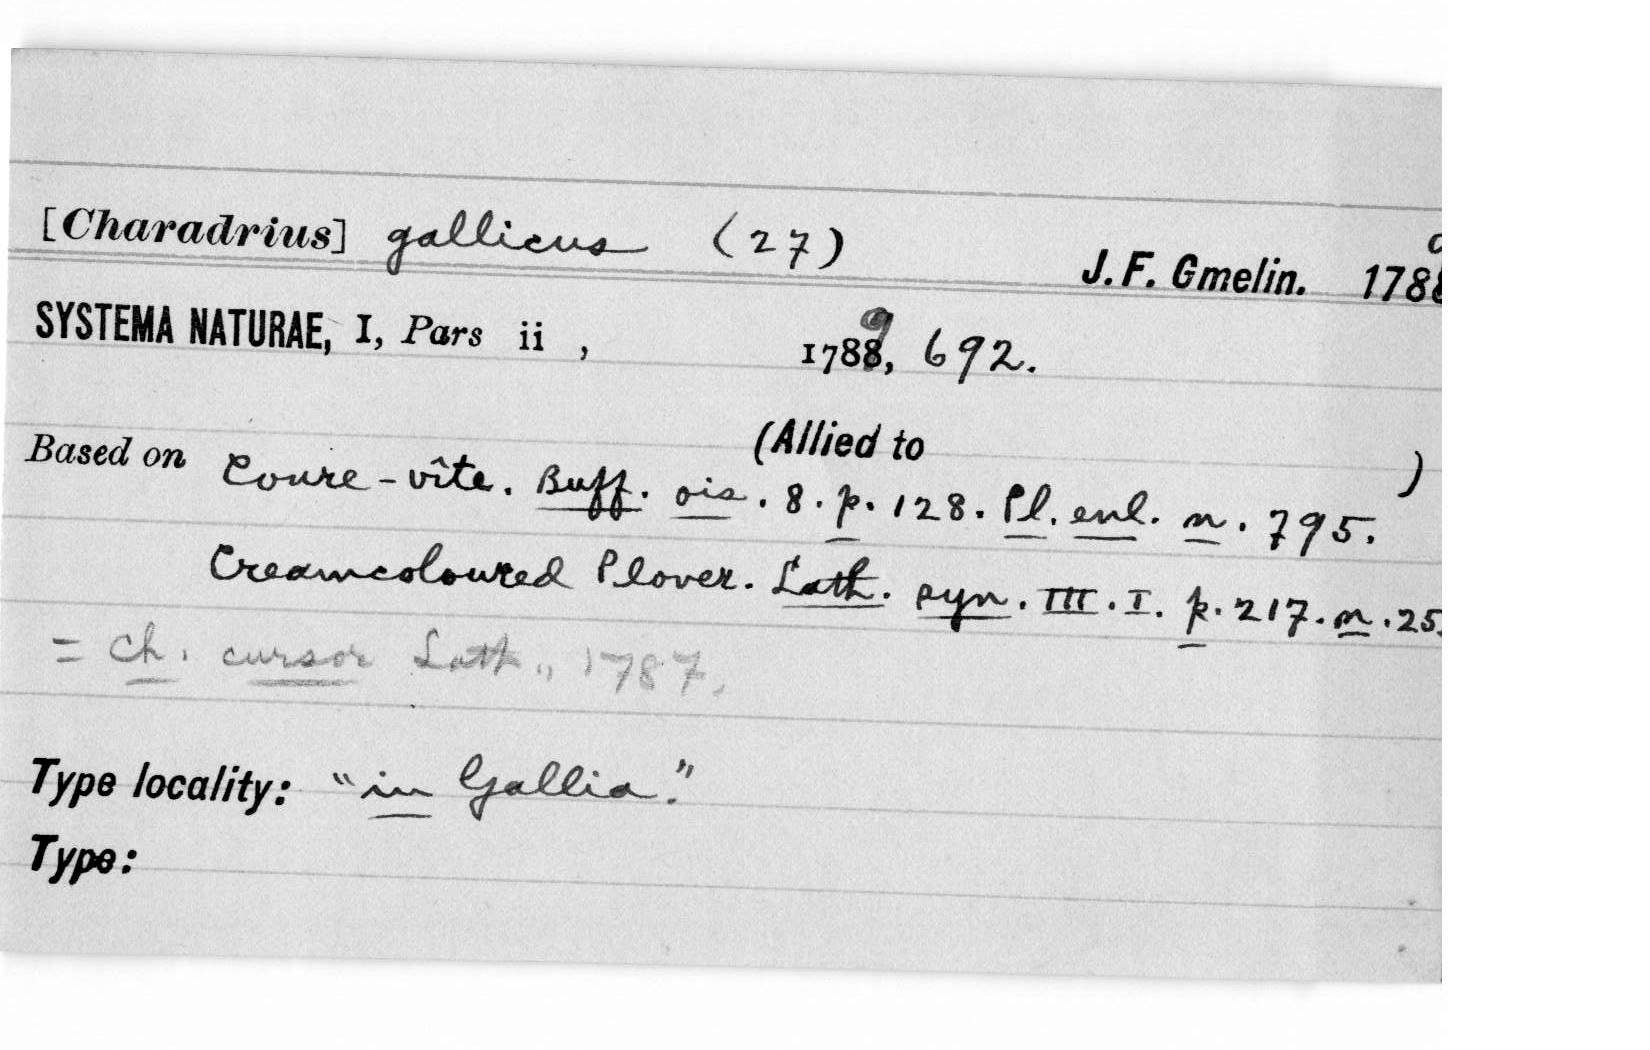 [Charadrius] gallicus (27)
J. F. Gmelin. 1788
SYSTEMA NATURAE, I, Pars ii , 1789, 692.
(Allied to )
Based on Coure-vîte. Buff. ois. 8. p. 128. Pl. enl. n. 795.
Creamcoloured Plover. Lath. syn. III. I. p. 217. n. 25.
= Ch. cursor Lath., 1787.
Type locality: "in Gallia."
Type: